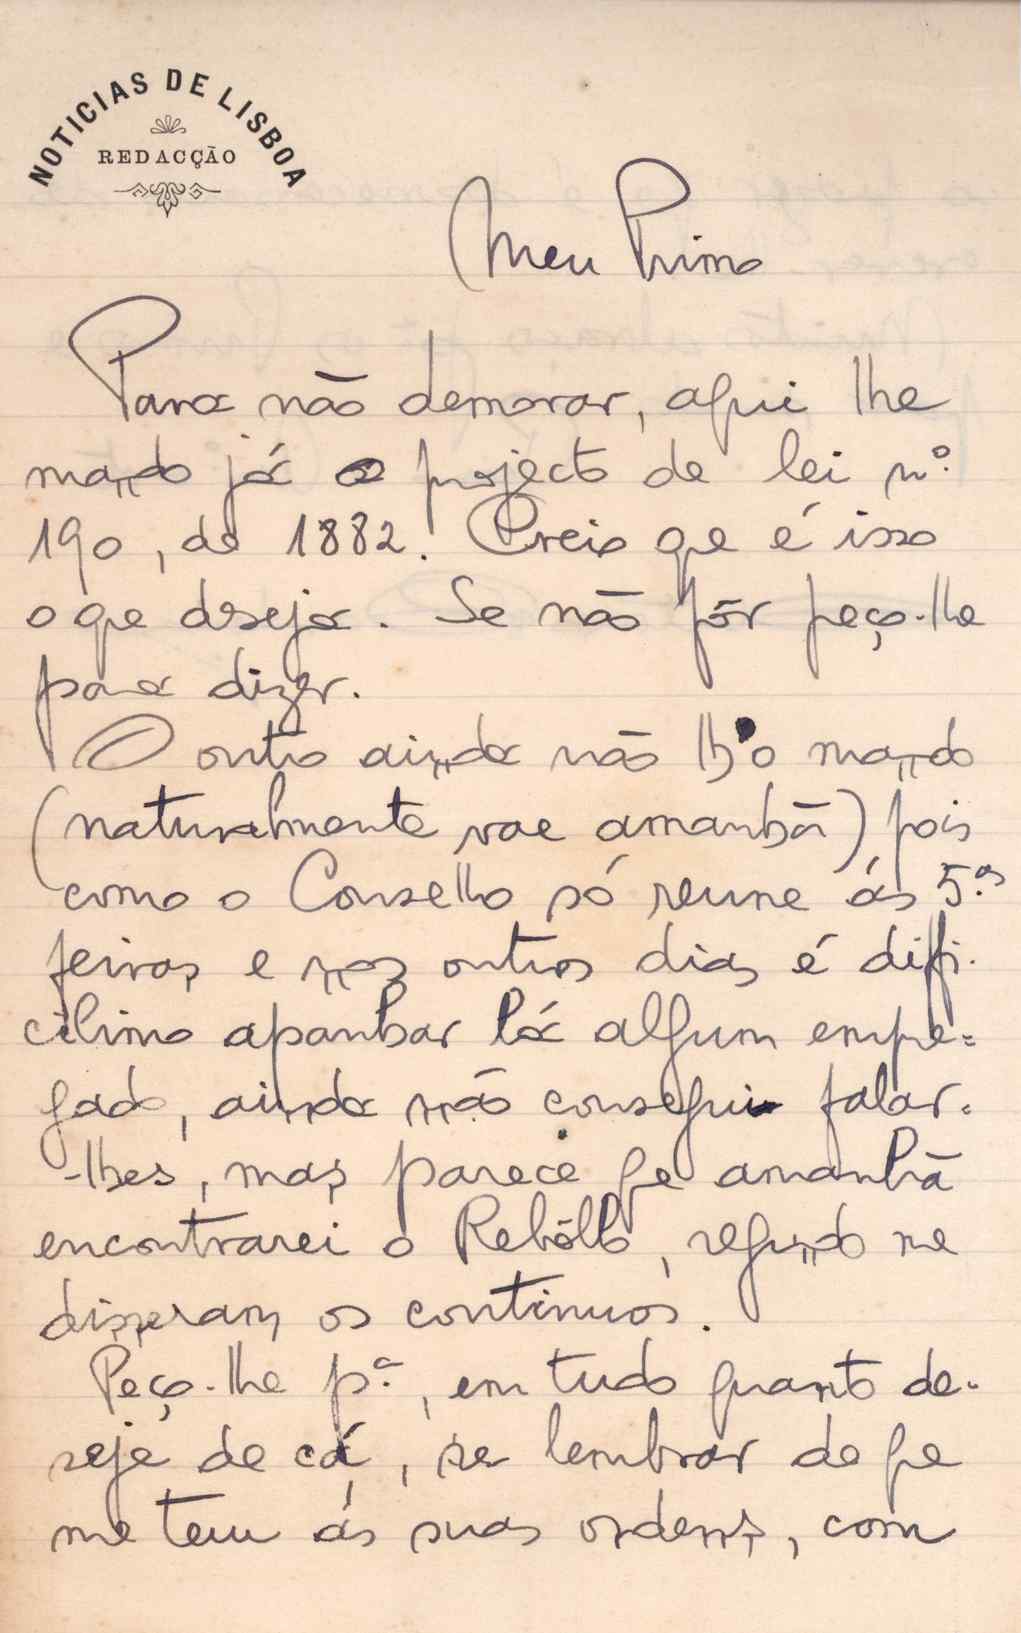 NOTICIAS DE LISBOA
REDACÇÃO
Meu Primo
Para não demorar, aqui lhe
mando já o projecto de lei nº
190, de 1882. Creio qe é isso
o qe deseja. Se não fôr peço-lhe
para dizer.
O outro ainda não lh'o mando
(naturalmente vae amanhã) pois
como o Conselho só reune ás 5.as
feiras e nos outros dias é diffi-
cilimo apanhar lá algum empre=
gado, ainda não consegui falar=
-lhes, mas parece qe amanhã
encontrarei o Rebêllo, segundo me
disseram os continuos.
Peço-lhe pª, em tudo quanto de-
seje de cá, se lembrar de qe
me tem ás suas ordens, com